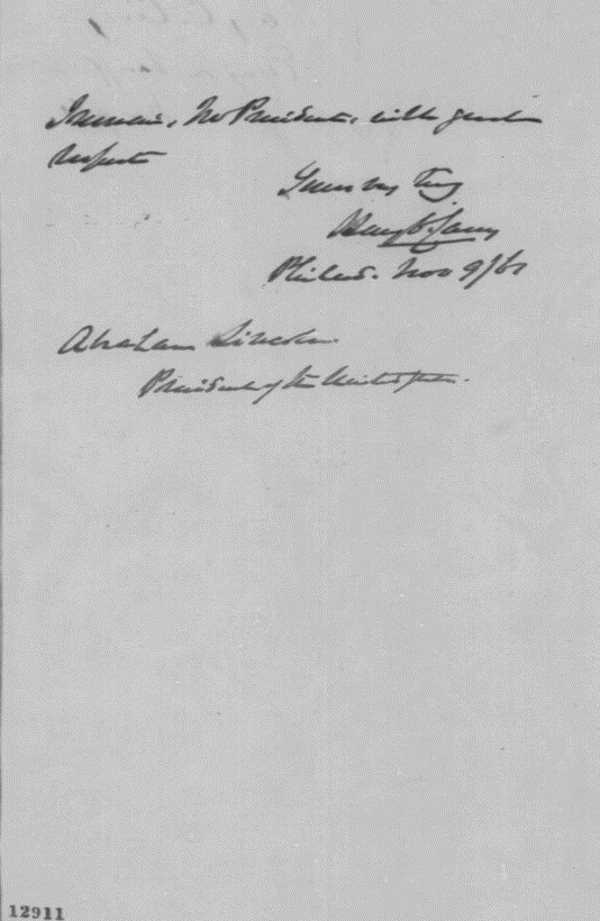 I remain, Mr President, with great
respect
Yours very truly
Henry C. Carey
Philad. Nov 9/61
Abraham Lincoln.
President of the United States.
12911